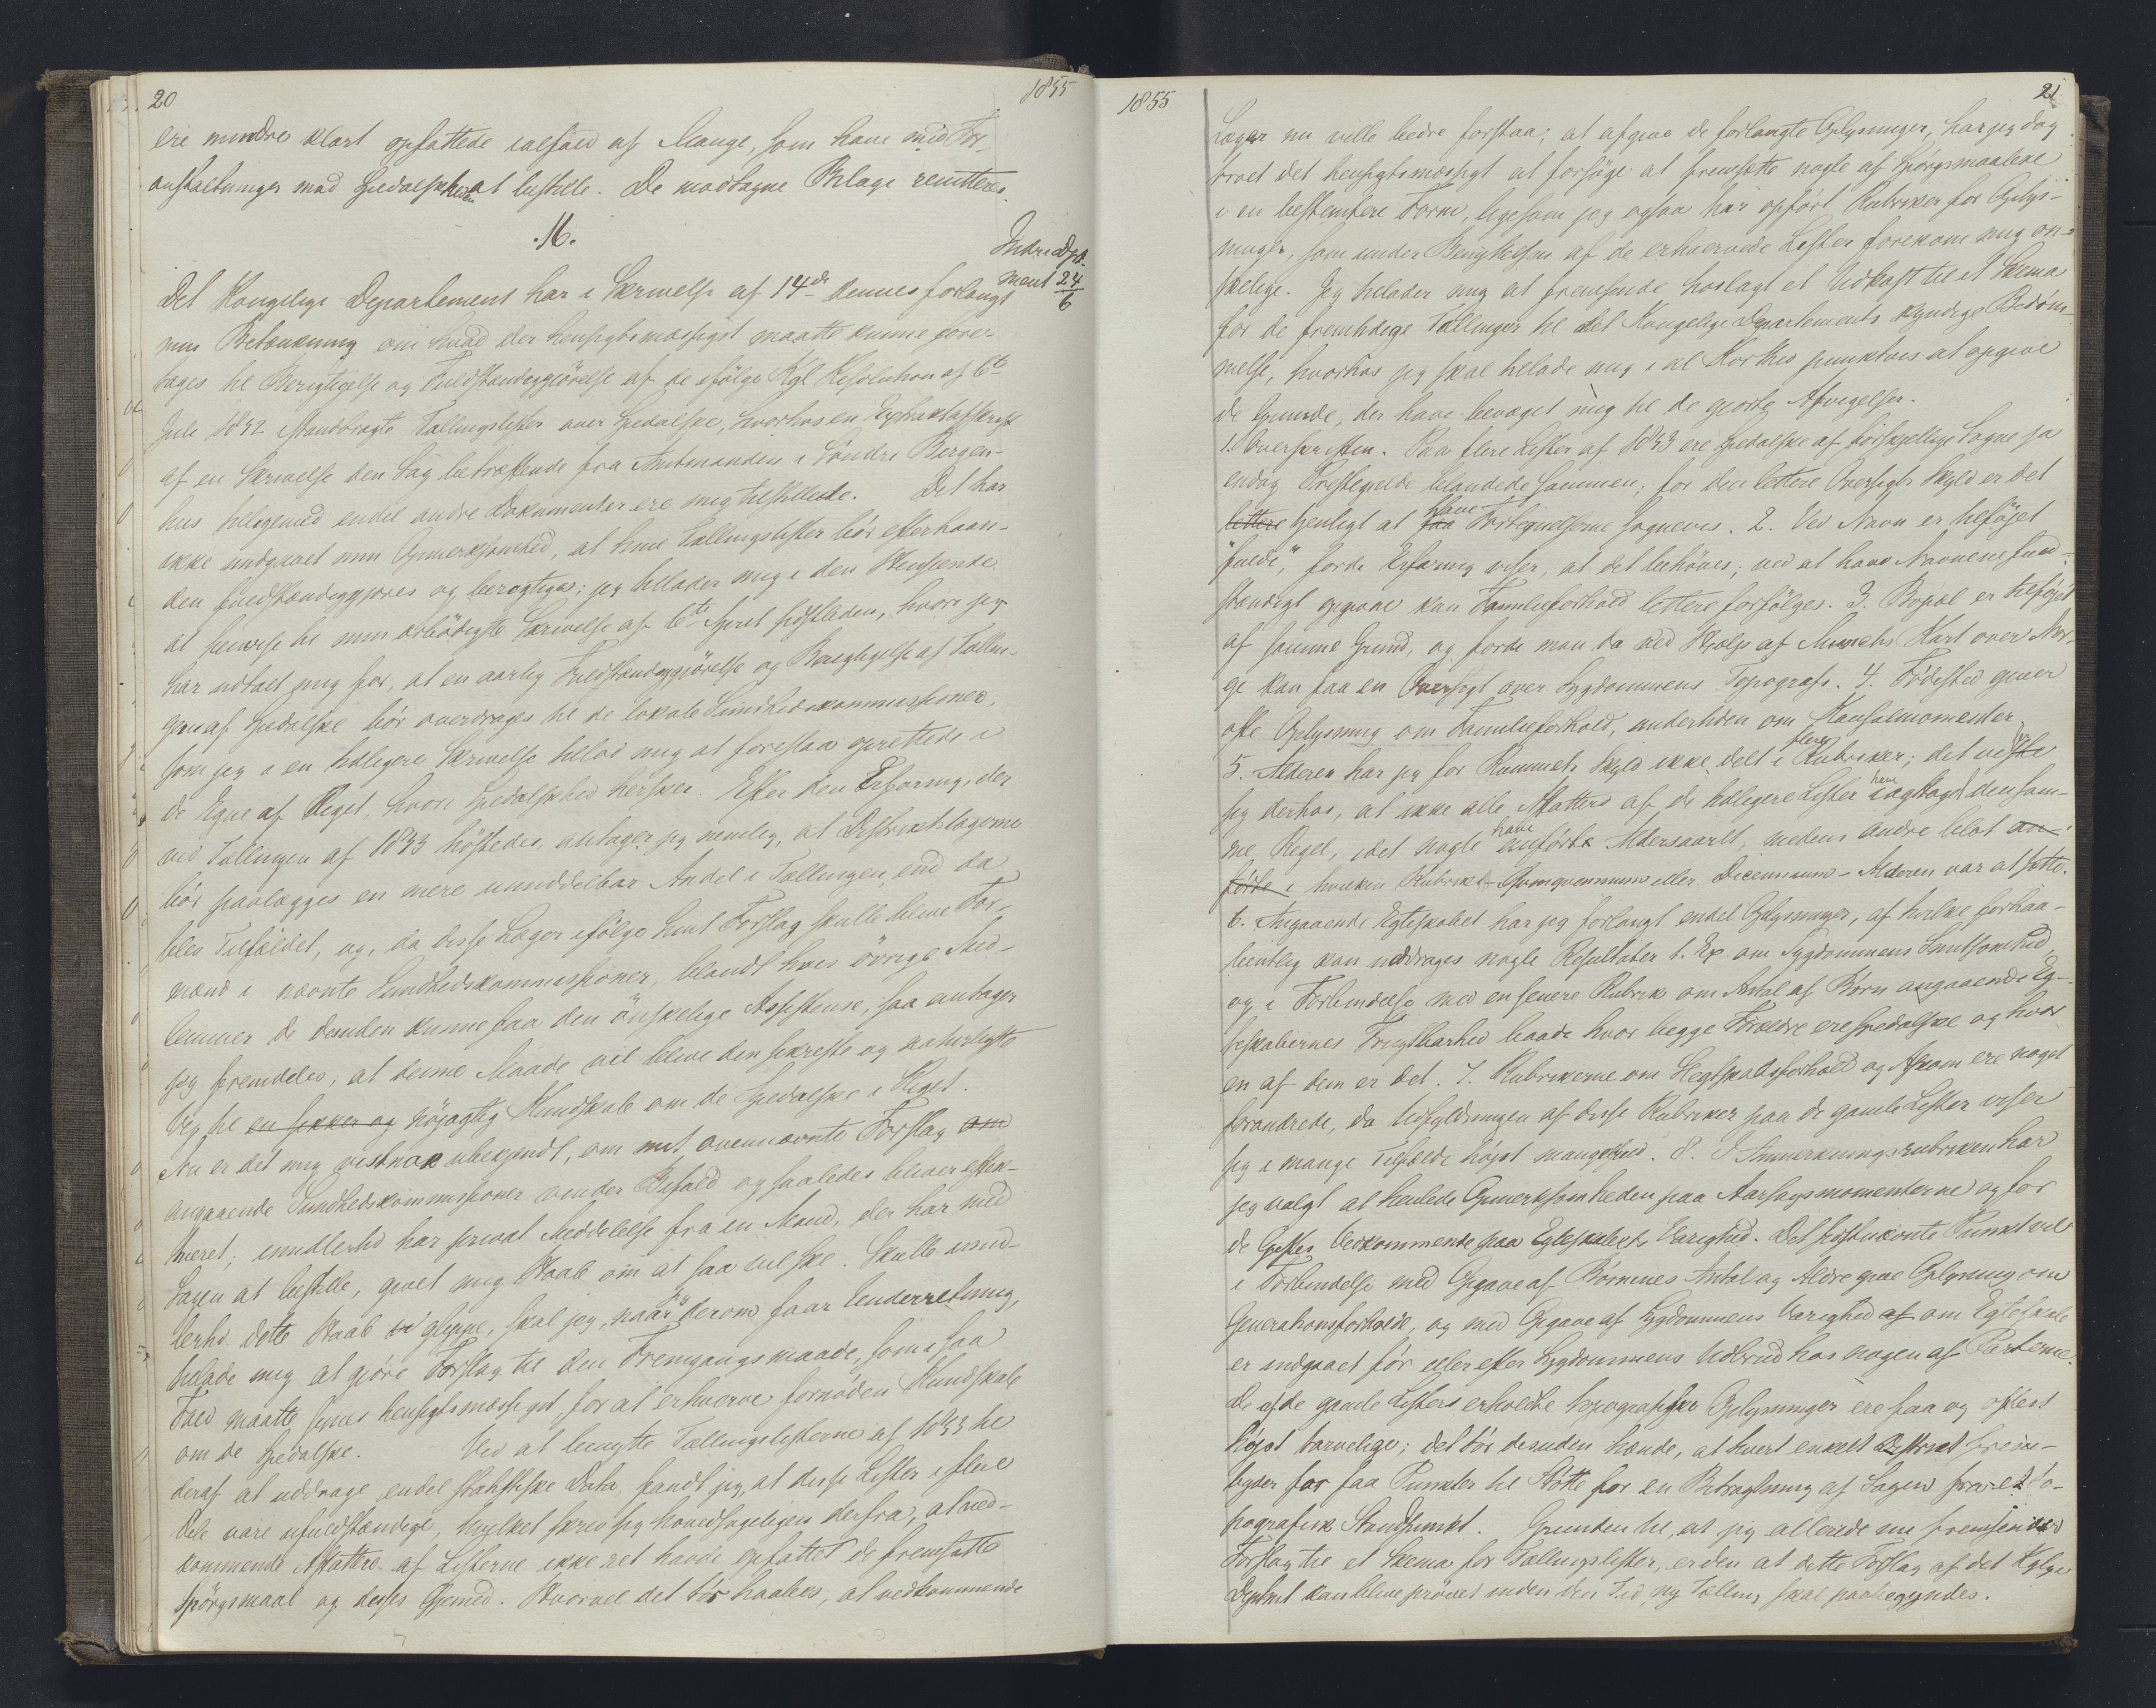 20
1855
ere mindre klart opfattede ialfald af Mange, som have med For-
anstaltninger mod Spedalskheden at bestille. De modtagne Bilage remitteres.
16.
Indredept-
ment 24/6
Det Kongelige Departement har i Skrivelse af 14de dennes forlangt
min Betænkning om hvad der hensigtsmæssigst maatte kunne fore-
tages til Berigtigelse og Fuldstændiggjörelse af de ifölge Kgl Resolution af 6te
Juli 1852 istandbragte Tællingslister over Spedalske, hvorhos en Extraktafskrift
af en Skrivelse den Sag betræffende fra Amtmanden i Söndre Bergen-
hus tilligemed endel andre Dokumenter ere mig tilstillede. Det har
ikke undgaaet min Opmerksomhed, at hine Tællingslister bör efterhaan-
den fuldstændiggjøres og berigtiges; jeg tillader mig i den Henseende
at henvise til min ærbödigste Skrivelse af 6te April sidstleden, hvori jeg
har udtalt mig for, at en aarlig Fuldstændiggjörelse og Berigtigelse af Tællin-
gen af Spedalske bör overdrages til de lokale Sundhedskommissioner,
som jeg i en tidligere Skrivelse tillod mig at foreslaa oprettede i
de Egne af Riget, hvori Spedalskhed hersker. Efter den Erfaring, der
ved Tællingen af 1853 höstedes, antager jeg nemlig, at Distriktslægerne
bör paalægges en mere umiddelbar Andel i Tællingen, end da
blev Tilfældet, og, da disse Læger ifölge hint Forslag skulle blive For-
mænd i nævnte Sundhedskommissioner, blandt hvis övrige Med-
lemmer de desuden kunne faa den önskelige Assistense, saa antager
jeg fremdeles, at denne Maade vil blive den sikreste og naturligste
Vej til en sikker og nöjagtig Kundskab om de Spedalske i Riget.
Nu er det mig vistnok ubekjendt, om mit ovennævnte Forslag om
angaaende Sundhedskommissioner vinder Bifald og saaledes bliver effek-
tueret; imidlertid har privat Meddelelse fra en Mand, der har med
Sagen at bestille, givet mig Haab om at saa vil ske. Skulle imid-
lertid dette Haab glippe, skal jeg, naar jeg derom faar Underretning,
tillade mig at gjöre Forslag til den Fremgangsmaade, som i saa
Fald maatte synes hensigtsmæssigst for at erhverve fornöden Kundskab
om de Spedalske. Ved at benytte Tællingslisterne af 1853 til
deraf at uddrage endel statistiske Data, fandt jeg, at disse Lister i flere
Dele vare ufuldstændige, hvilket skrev sig hovedsageligen derfra, at ved-
kommende Affattere af Listerne ikke ret havde opfattet de fremsatte
Spörgsmaal og disses Öjemed. Hvorvel det tör haabes, at vedkommende
1855
21
Læger nu ville bedre forstaa, at afgive de forlangte Oplysninger, har jeg dog
troet det hensigtsmæssigt at forsöge at fremsætte nogle af Spörgsmaalene
i en bestemtere Form, ligesom jeg ogsaa har opfört Rubriker for Oplys-
ninger, som under Benyttelsen af de erhvervede Lister forekom mig øn-
skelige. Jeg tillader mig at fremsende hoslagt et Udkast til et Skema
for de fremtidige Tællinger til det Kongelige Departements kyndige Bedöm-
melse, hvorhos jeg skal tillade mig i al Korthed punktvis at opgive
de Grunde, der have bevæget mig til de gjorte Afvigelser.
1. Overskriften. Paa flere Lister af 1853 ere Spedalske af forskjellige Sogne ja
endog Prestegjelde blandede sammen; for den lettere Oversigts Skyld er det
lettere tjenligt at faa have Fortegnelserne sognevis. 2. Ved Navn er tilföjet
"fulde", fordi Erfaring viser, at det behöves; ved at have Navnene fuld-
stændigt opgivne kan Familieforhold lettere forfölges. 3. Bopæl er tilföjet
af samme Grund, og fordi man da ved Hjælp af Munchs Kart over Nor-
ge kan faa en Oversigt over Sygdommens Topografi. 4. Födested giver
ofte Oplysning om Familieforhold, undertiden om Kausalmomenter.
5. Alderen har jeg for Rummets Skyld ikke delt i flere Rubriker; det viste
sig derhos, at ikke alle Affattere af de tidligere Lister have iagttaget den sam-
me Regel, idet nogle have anført Aldersaaret, medens andre blot an-
førte i hvilken Rubrik - Qvinqvennium eller Decennium - Alderen var at sætte.
6. Angaaende Egteskabet har jeg forlangt endel Oplysninger, af hvilke forhaa-
bentlig kan uddrages nogle Resultater t. Ex om Sygdommens Smitsomhed
og i Forbindelse med en senere Rubrik om Antal af Børn angaaende Eg-
teskabernes Frugtbarhed baade hvor begge Forældre ere spedalske og hvor
en af dem er det. 7. Rubrikerne om Slegtskabsforhold og Afkom ere noget
forandrede, da Udfyldningen af disse Rubriker paa de gamle Lister viser
sig i mange Tilfælde höjst mangelfuld. 8. I Anmerkningsrubriken har
jeg valgt at henlede Opmerksomheden paa Aarsagsmomenterne og for
de Gifte Vedkommende paa Egteskabets Varighed. Det sidstnævnte Punkt vil
i Forbindelse med Opgave af Börnenes Antal og Aldre give Oplysning om
Generationsforholde, og med Opgave af Sygdommens Varighed af om Egteskab
er indgaaet för eller efter Sygdommens Udbrud hos nogen af Parterne.
De af de gamle Listers erholdte topografiske Oplysninger ere faa og oftest
höjst tarvelige; det tör desuden hænde, at hvert enkelt Distrikt frem-
byder for faa Punkter til Stötte for en Betragtning af Sagen fra et to-
pografisk Standpunkt. Grunden til, at jeg allerede nu fremsender
Forslag til et Skema for Tællingslister, er den at dette Forslag af det Kglge
Deptmt kan blive prövet inden den Tid, ny Tælling skal paabegyndes.